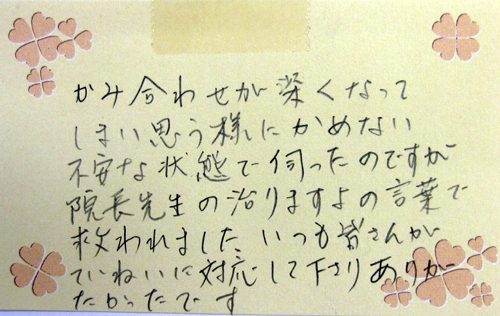 かみ合わせが深くなって
しまい思う様にかめない
不安な状態で伺ったのですが
院長先生の治りますよの言葉で
救われました、いつも皆さんが
ていねいに対応して下さりありが
たかったです